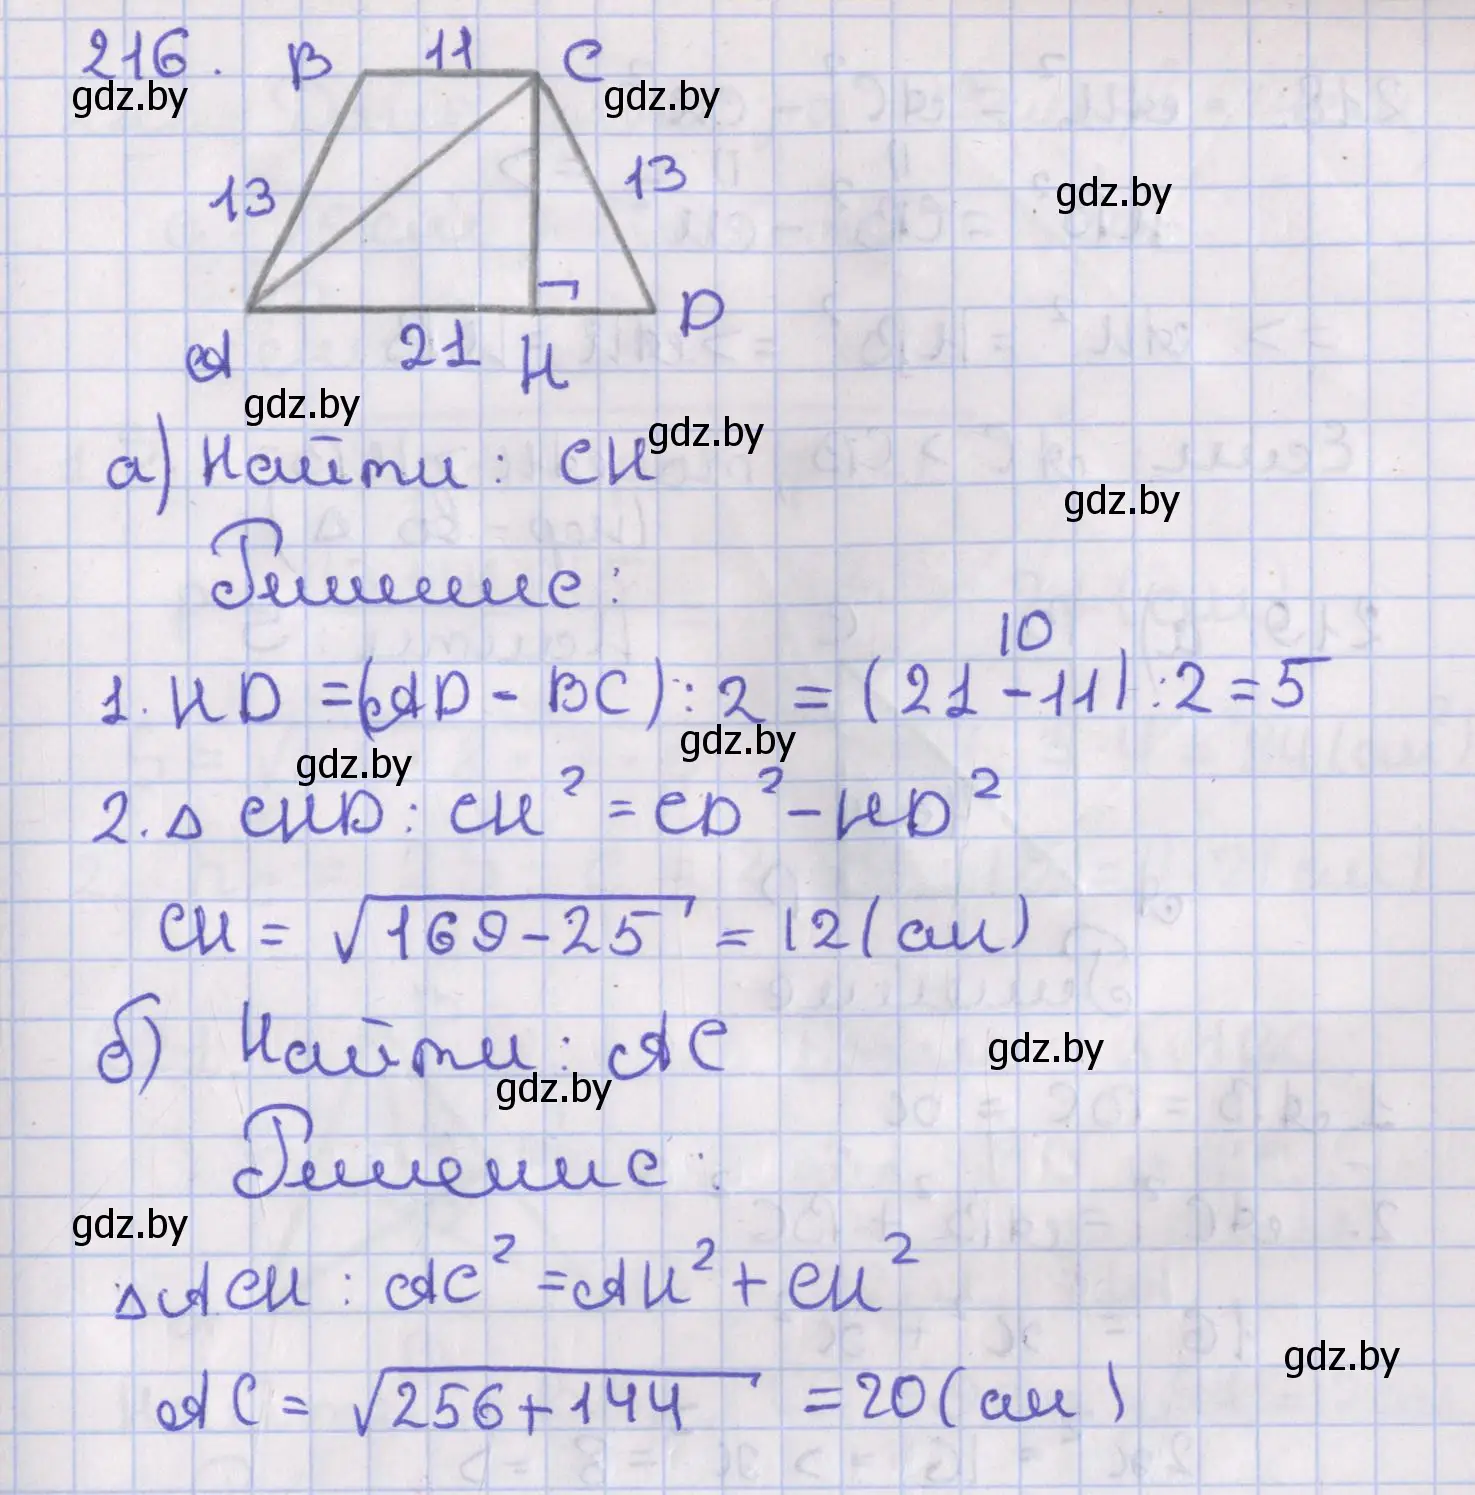 216. B 11 C
gdz.by gdz.by
13 13
gdz.by
A 21 H D
gdz.by
gdz.by
а) Найти: CH
gdz.by
Решение:
10
1. HD = (AD - BC) : 2 = (21 - 11) : 2 = 5
gdz.by
gdz.by
2. △ CHD: CH² = CD² - HD²
CH = √169 - 25 = 12 (см)
б) Найти: AC
gdz.by
gdz.by
Решение:
gdz.by
△ACH: AC² = AH² + CH²
gdz.by
AC = √256 + 144 = 20 (см)